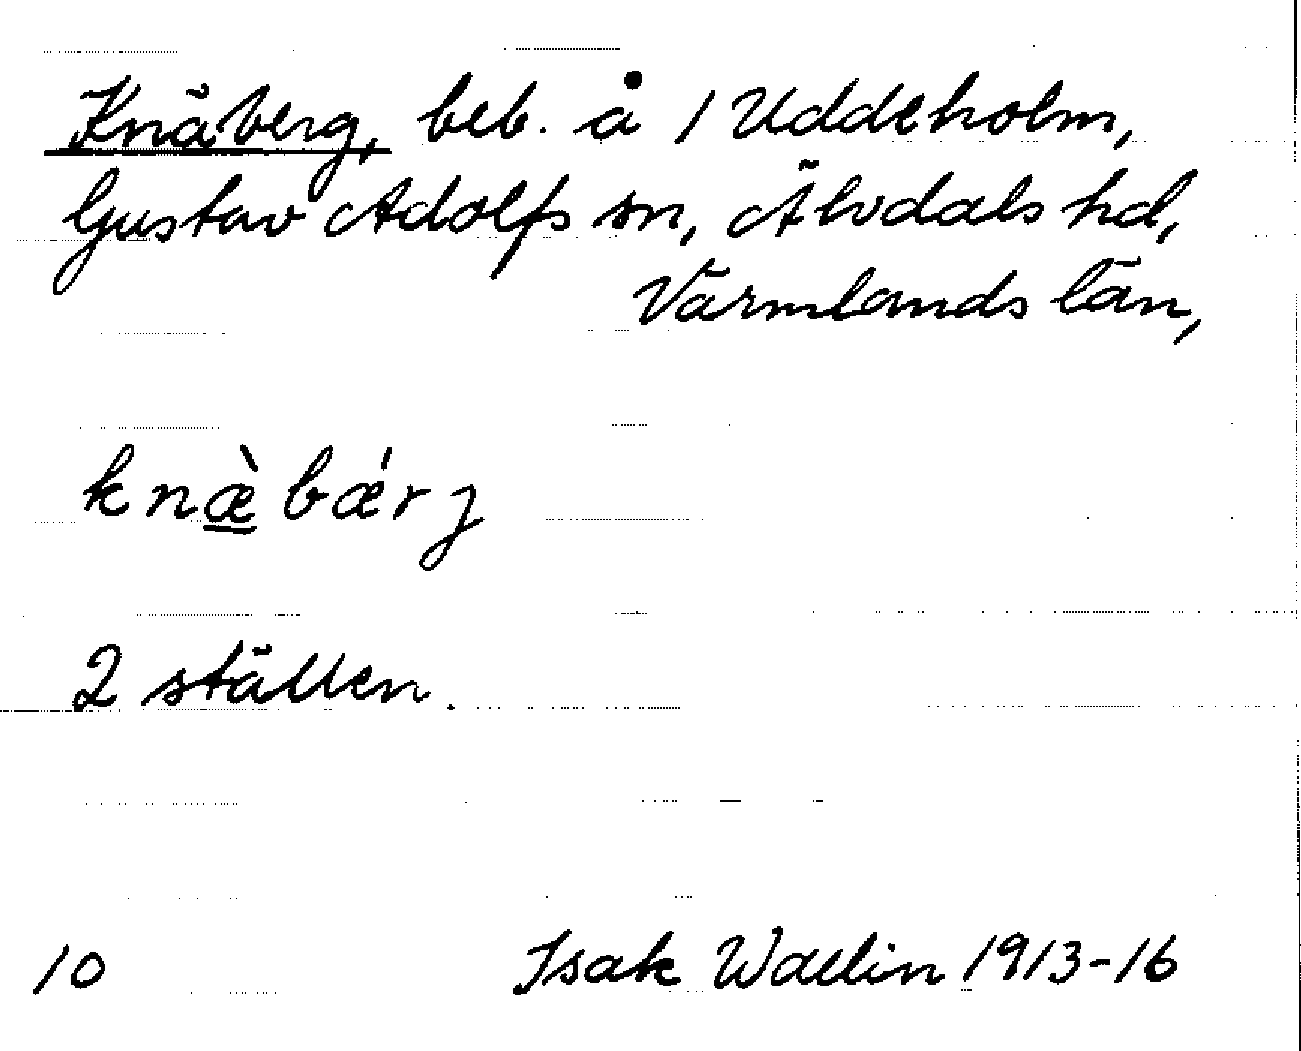 Knäberg, beb. å 1 Uddeholm,
Gustav Adolfs sn, Älvdals hd,
Värmlands län,
knæ̀bǽrj
2 ställen.
10 Isak Wallin 1913-16